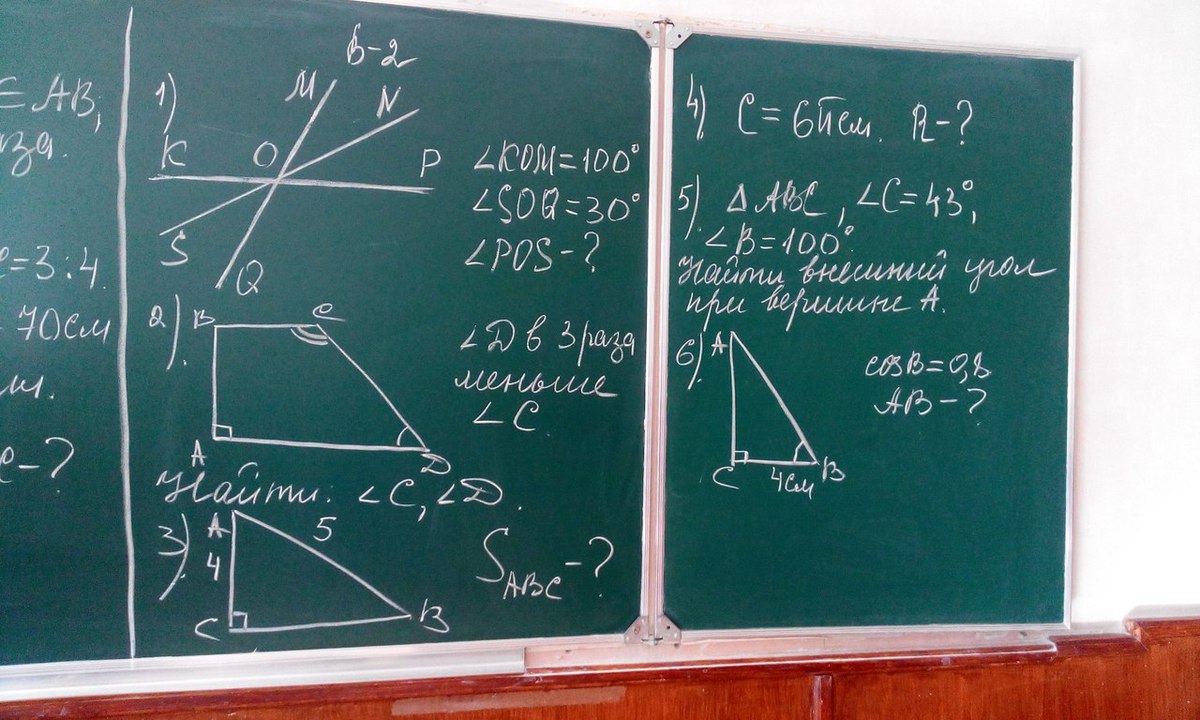 ∈ AB;
аза.
=3:4.
70см
м.
-?
В-2
1)
M
N
K
O
P
S
Q
∠KOM=100°
∠SOQ=30°
∠POS-?
2)
B
C
A
D
∠D в 3 раза
меньше
∠C
Найти: ∠C, ∠D.
3)
A
5
4
C
B
S ABC -?
4) C=6πсм. R-?
5) △ABC, ∠C=43°,
∠B=100°
Найти внешний угол
при вершине A.
6)
A
C
4см
B
cosB=0,8
AB-?